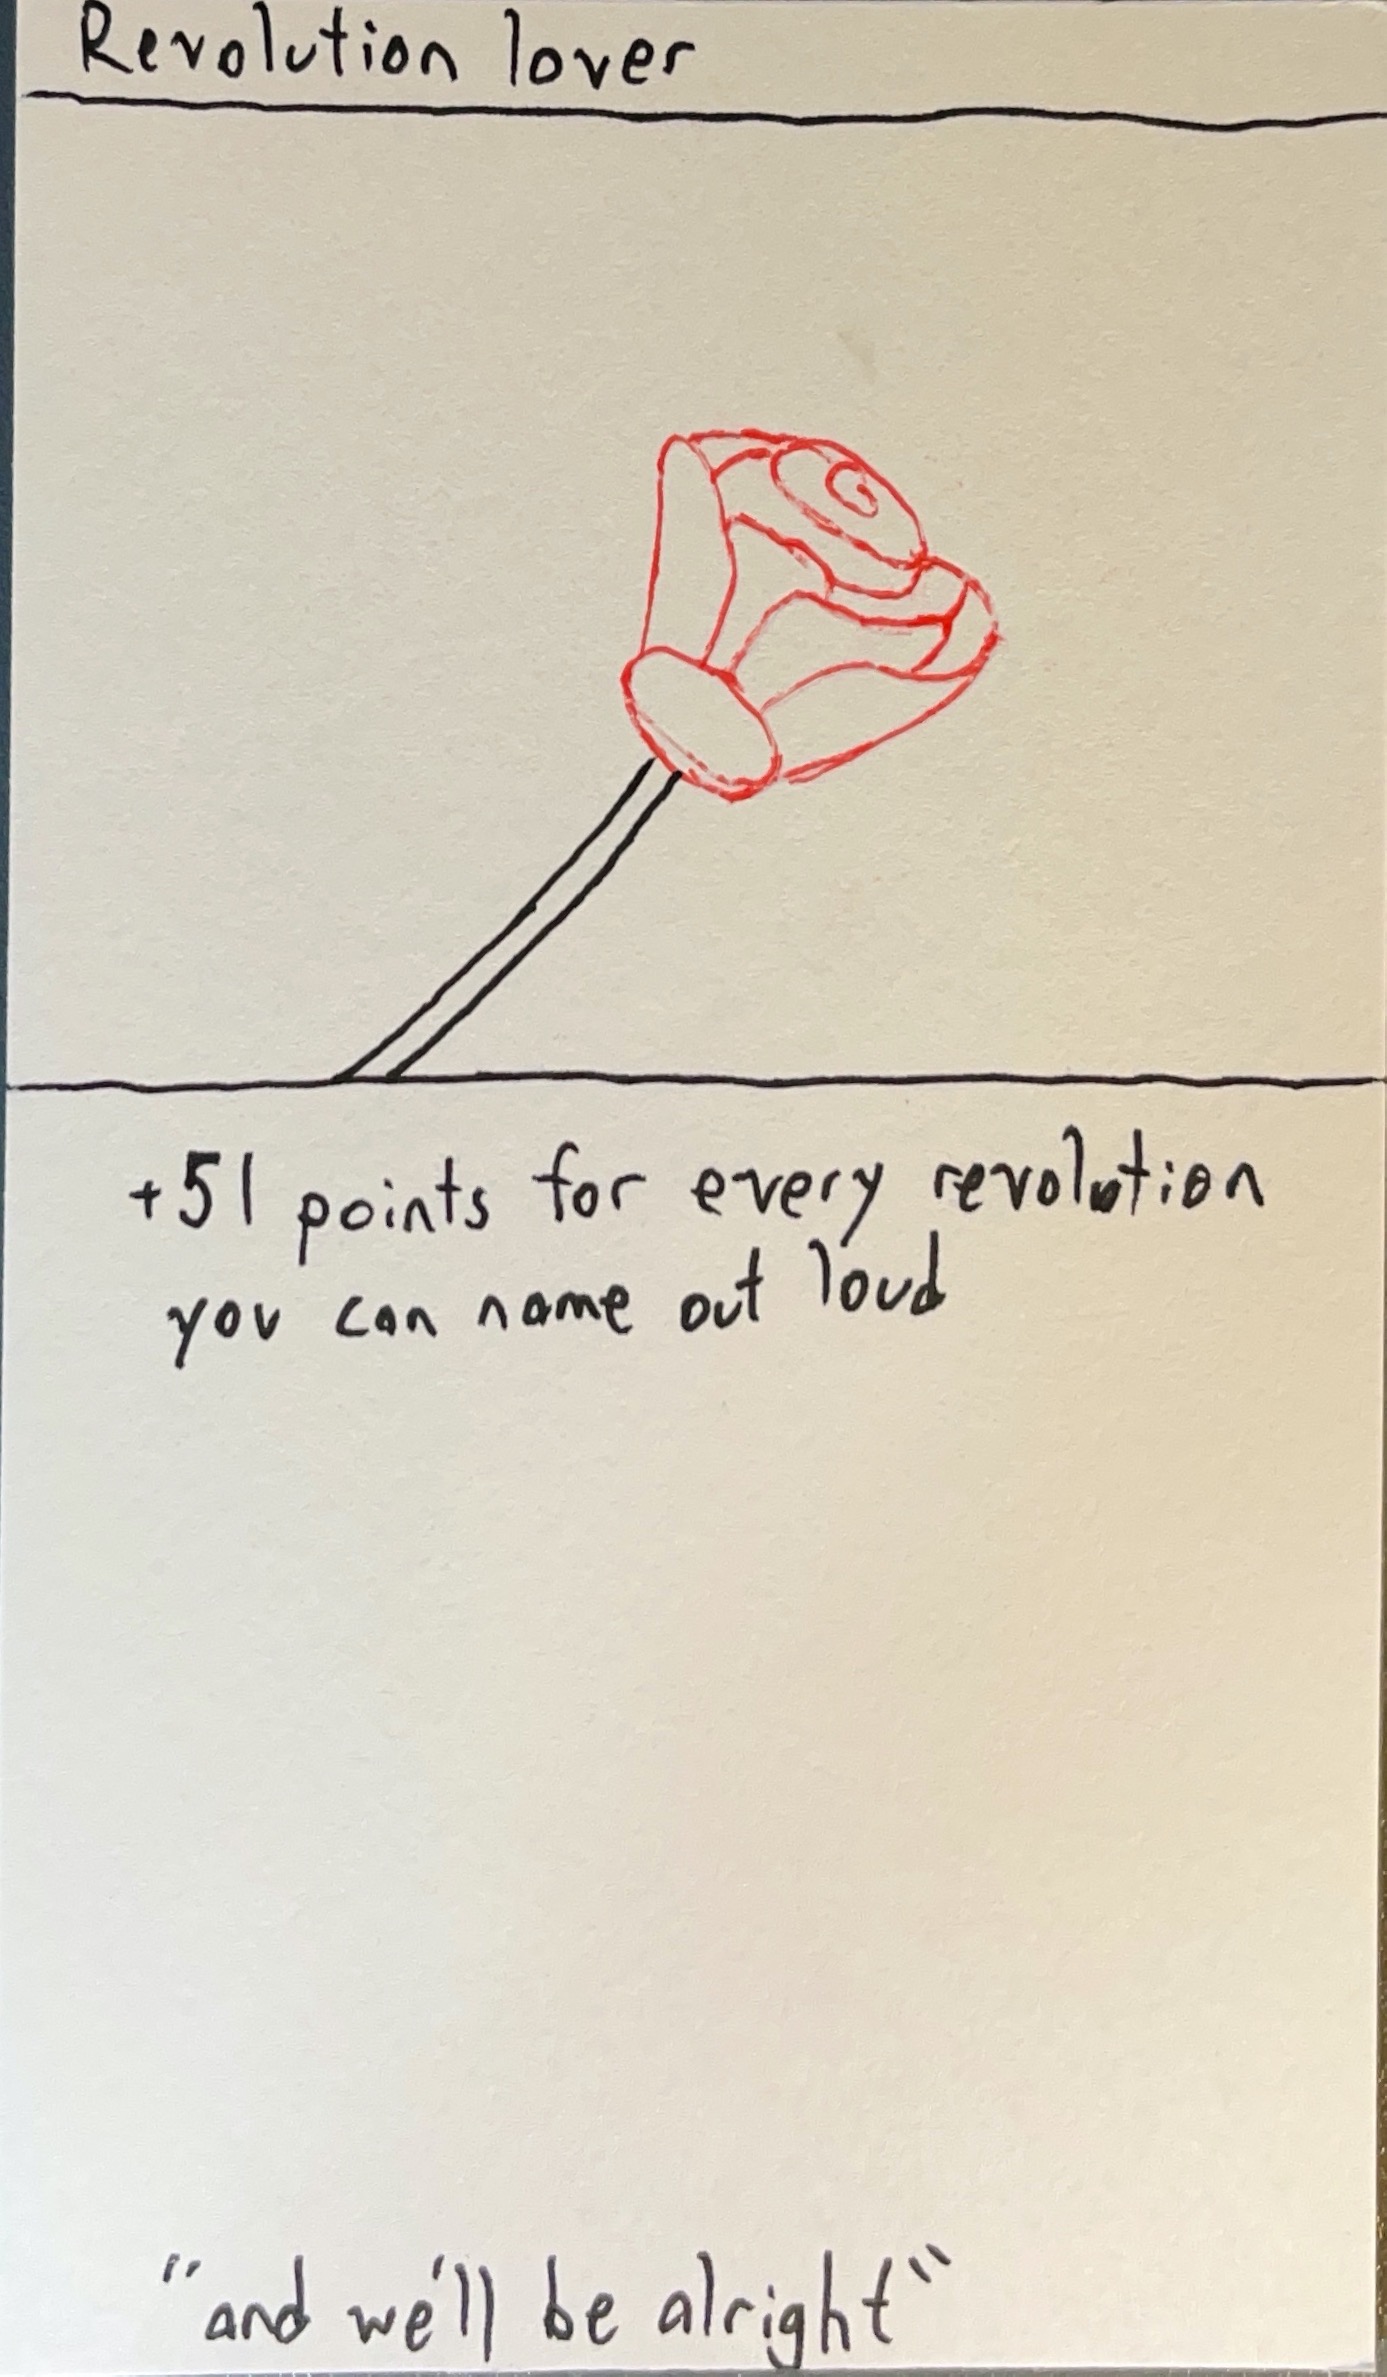 Revolution lover
+51 points for every revolution
you can name out loud
"and we'll be alright"